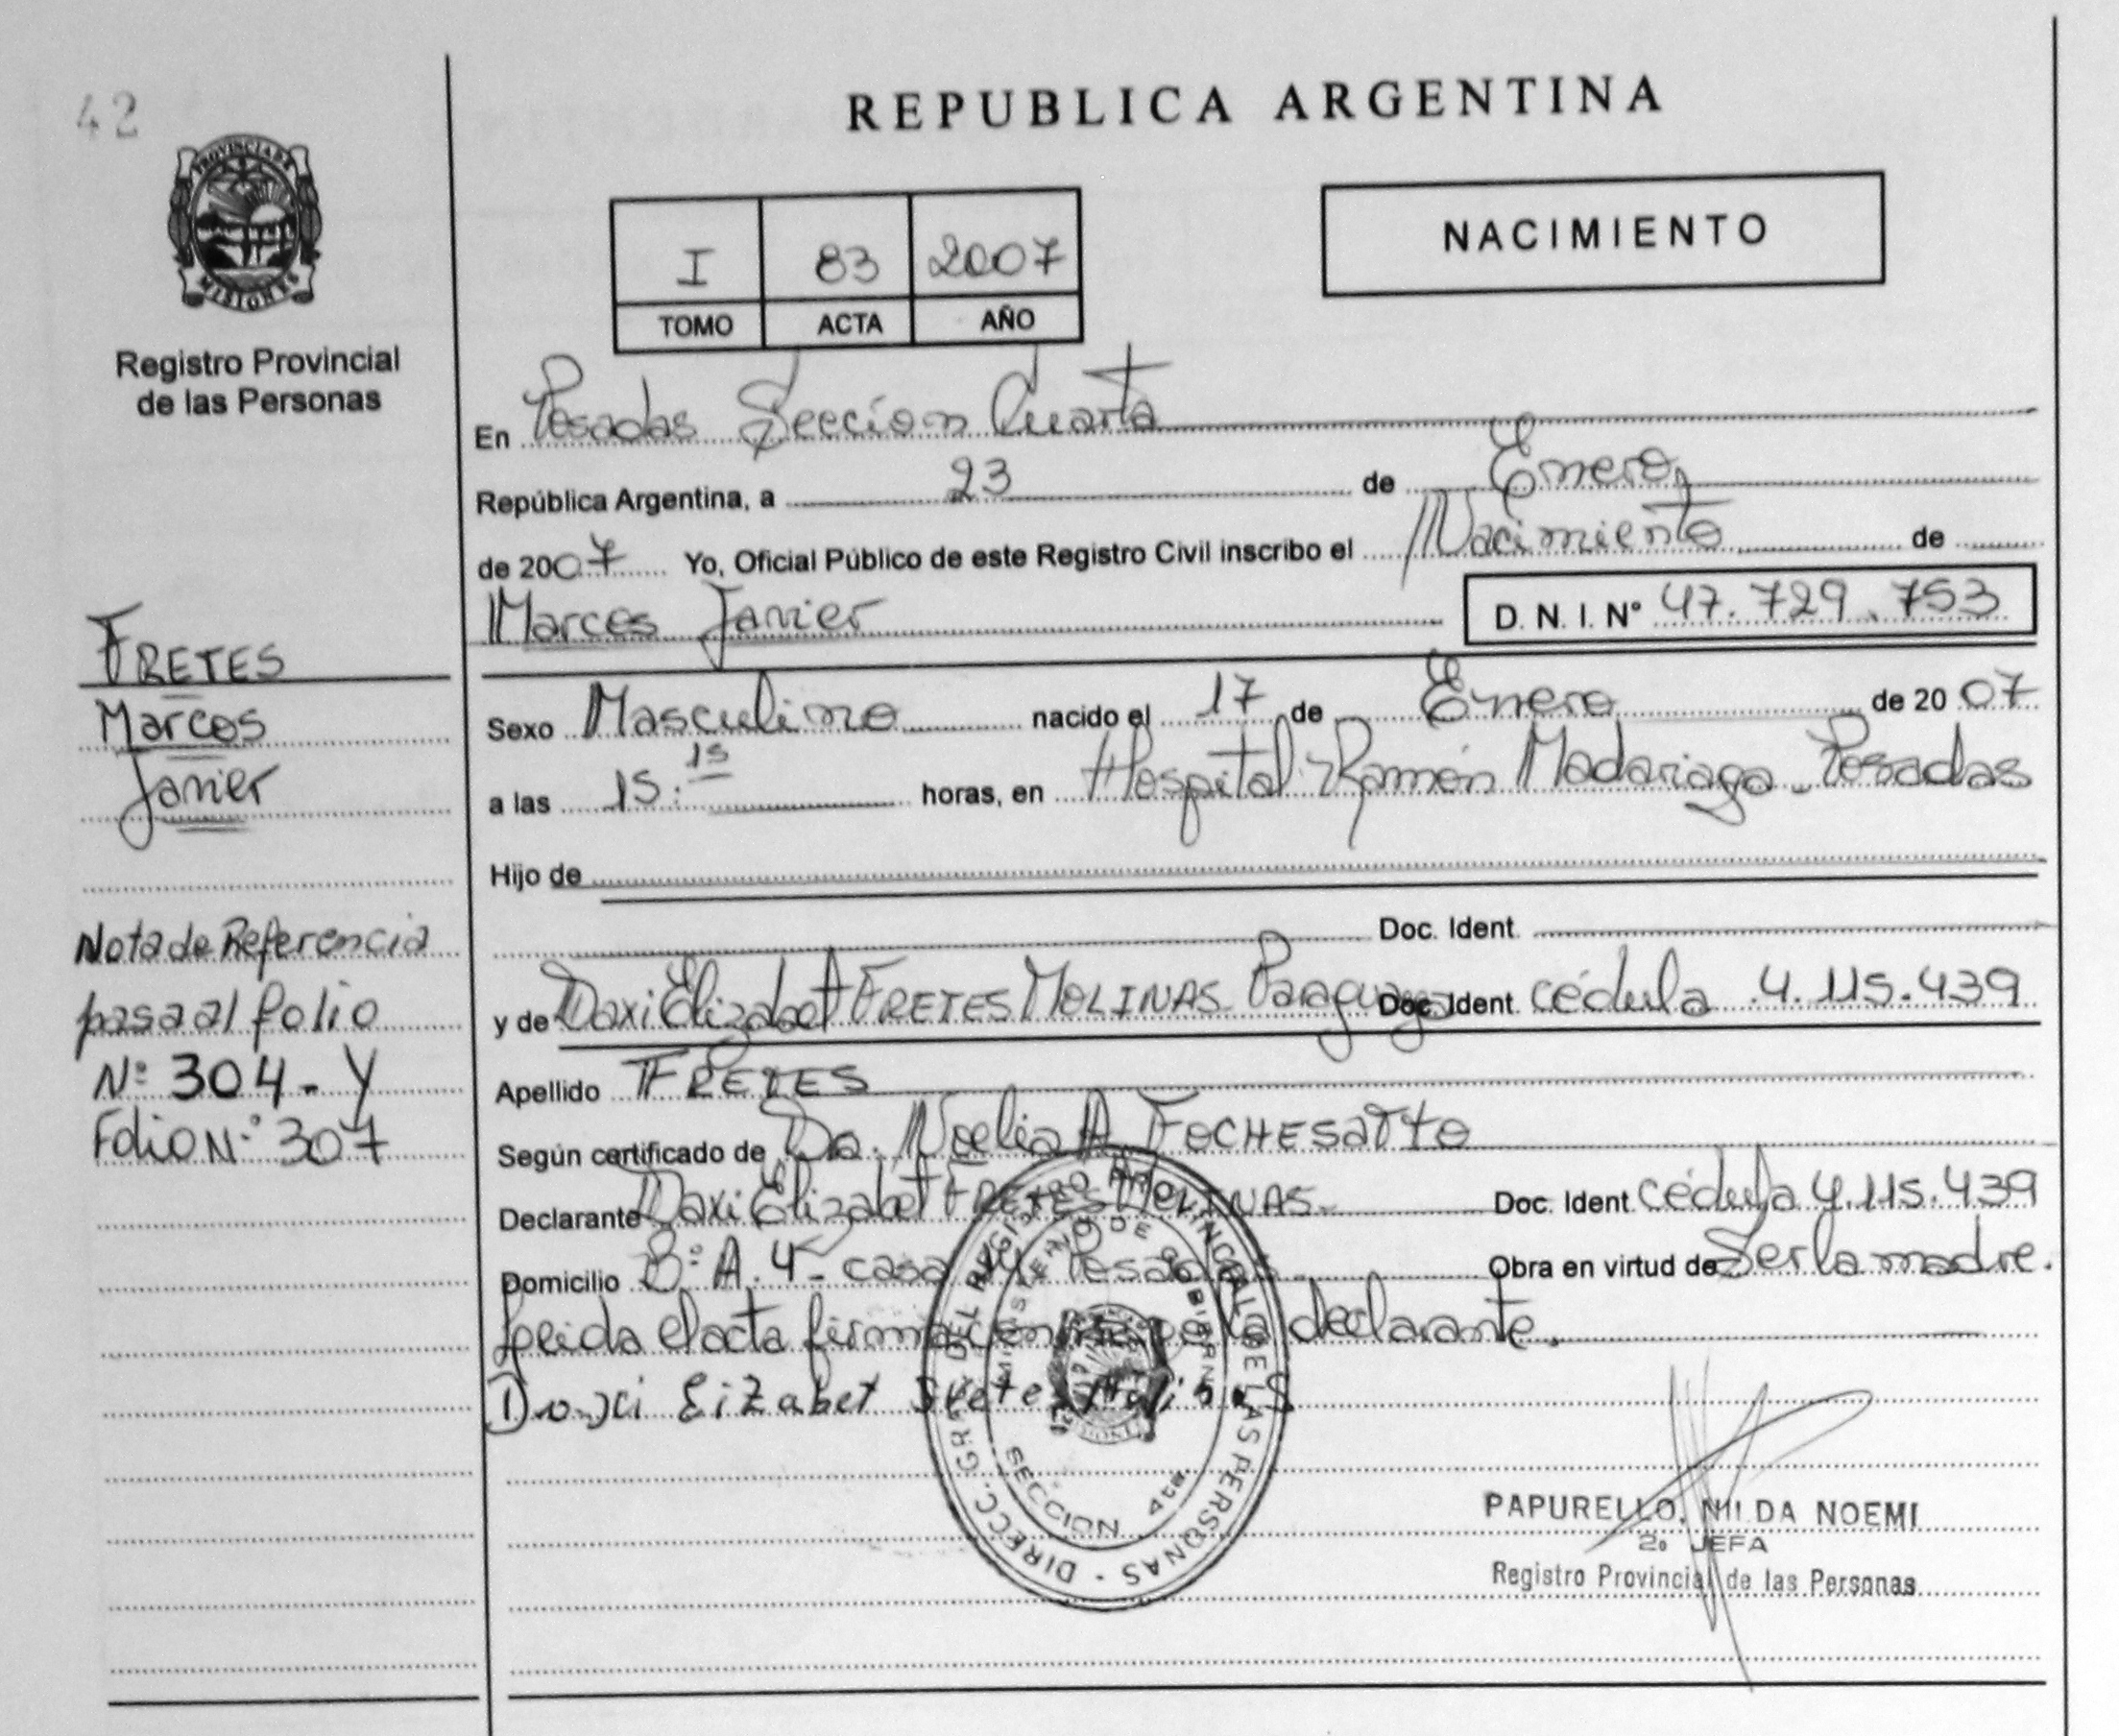 42
REPUBLICA ARGENTINA
PROVINCIA DE
MISIONES
Registro Provincial
de las Personas
I 83 2007
TOMO ACTA AÑO
NACIMIENTO
En Posadas Sección Cuarta
República Argentina, a 23 de Enero
de 2007 Yo, Oficial Público de este Registro Civil inscribo el Nacimiento de
Marcos Javier D. N. I. N° 47.729.753
FRETES
Marcos
Javier
Sexo Masculino nacido el 17 de Enero de 2007
a las 15:15 horas, en Hospital Ramón Madariaga - Posadas
Hijo de
Doc. Ident.
y de Daxi Elizabet FRETES MOLINAS Paraguaya Doc. Ident. cédula 4.115.439
Apellido FRETES
Según certificado de Dra. Noelia A. FOCHESATTO
Declarante Daxi Elizabet FRETES MOLINAS Doc. Ident. cédula 4.115.439
Domicilio B° A.4 - casa Posadas Obra en virtud de Ser la madre.
Leida el acta firma la declarante.
Daxi Eizabet Fretes Molinas
Nota de Referencia
pasa al folio
N° 304 - Y
Folio N° 307
DIRECC. GRAL DEL REGISTRO PROVINCIAL DE LAS PERSONAS -
MINISTERIO DE GOBIERNO
SECCION 4ta
PAPURELLO, NILDA NOEMI
2o JEFA
Registro Provincial de las Personas